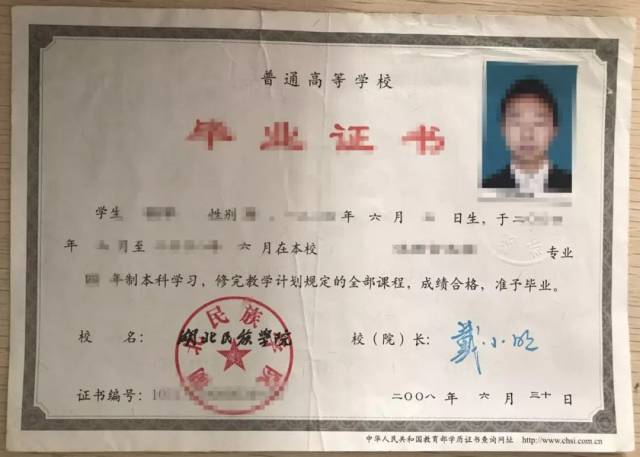 普通高等学校
毕业证书
学生 性别 年 六 月 日生，于二
年 月至 六 月在本校 专业
年制本科学习，修完教学计划规定的全部课程，成绩合格，准予毕业。
校 名： 湖北民族学院 校（院）长： 戴小明
证书编号：10 二〇〇八 年 六 月 三十 日
中华人民共和国教育部学历证书查询网址 http://www.chsi.com.cn